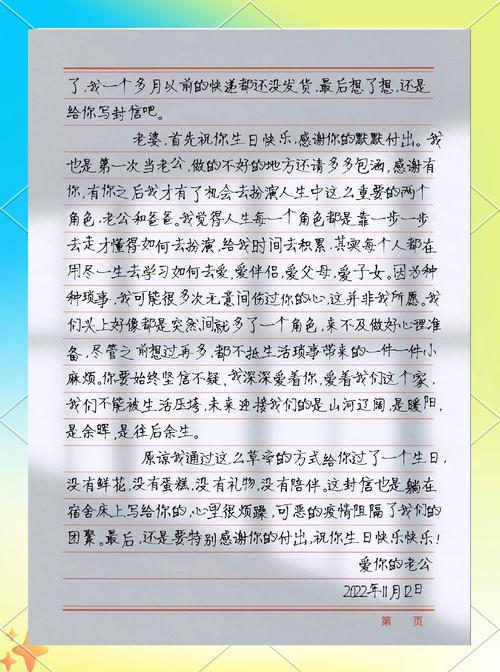 了,我一个多月以前的快递都还没发货,最后想了想,还是
给你写封信吧。
老婆,首先祝你生日快乐,感谢你的默默付出。我
也是第一次当老公,做的不好的地方还请多多包涵,感谢有
你,有你之后我才有了机会去扮演人生中这么重要的两个
角色,老公和爸爸。我觉得人生每一个角色都是靠一步一步
去走才懂得如何去扮演,给我时间去积累,其实每个人都在
用尽一生去学习如何去爱,爱伴侣,爱父母,爱子女。因为种
种琐事,我可能很多次无意间伤过你的心,这并非我所愿。我
们头上好像都是突然间就多了一个角色,来不及做好心理准
备,尽管之前想过再多,都不抵生活琐事带来的一件一件小
麻烦。你要始终坚信不疑,我深深爱着你,爱着我们这个家,
我们不能被生活压垮,未来迎接我们的是山河辽阔,是暖阳,
是余晖,是往后余生。
原谅我通过这么草率的方式给你过了一个生日,
没有鲜花,没有蛋糕,没有礼物,没有陪伴。这封信也是躺在
宿舍床上写给你的,心里很烦躁,可恶的疫情阻隔了我们的
团聚。最后,还是要特别感谢你的付出,祝你生日快乐快乐!
爱你的老公
2022年11月12日
第 页